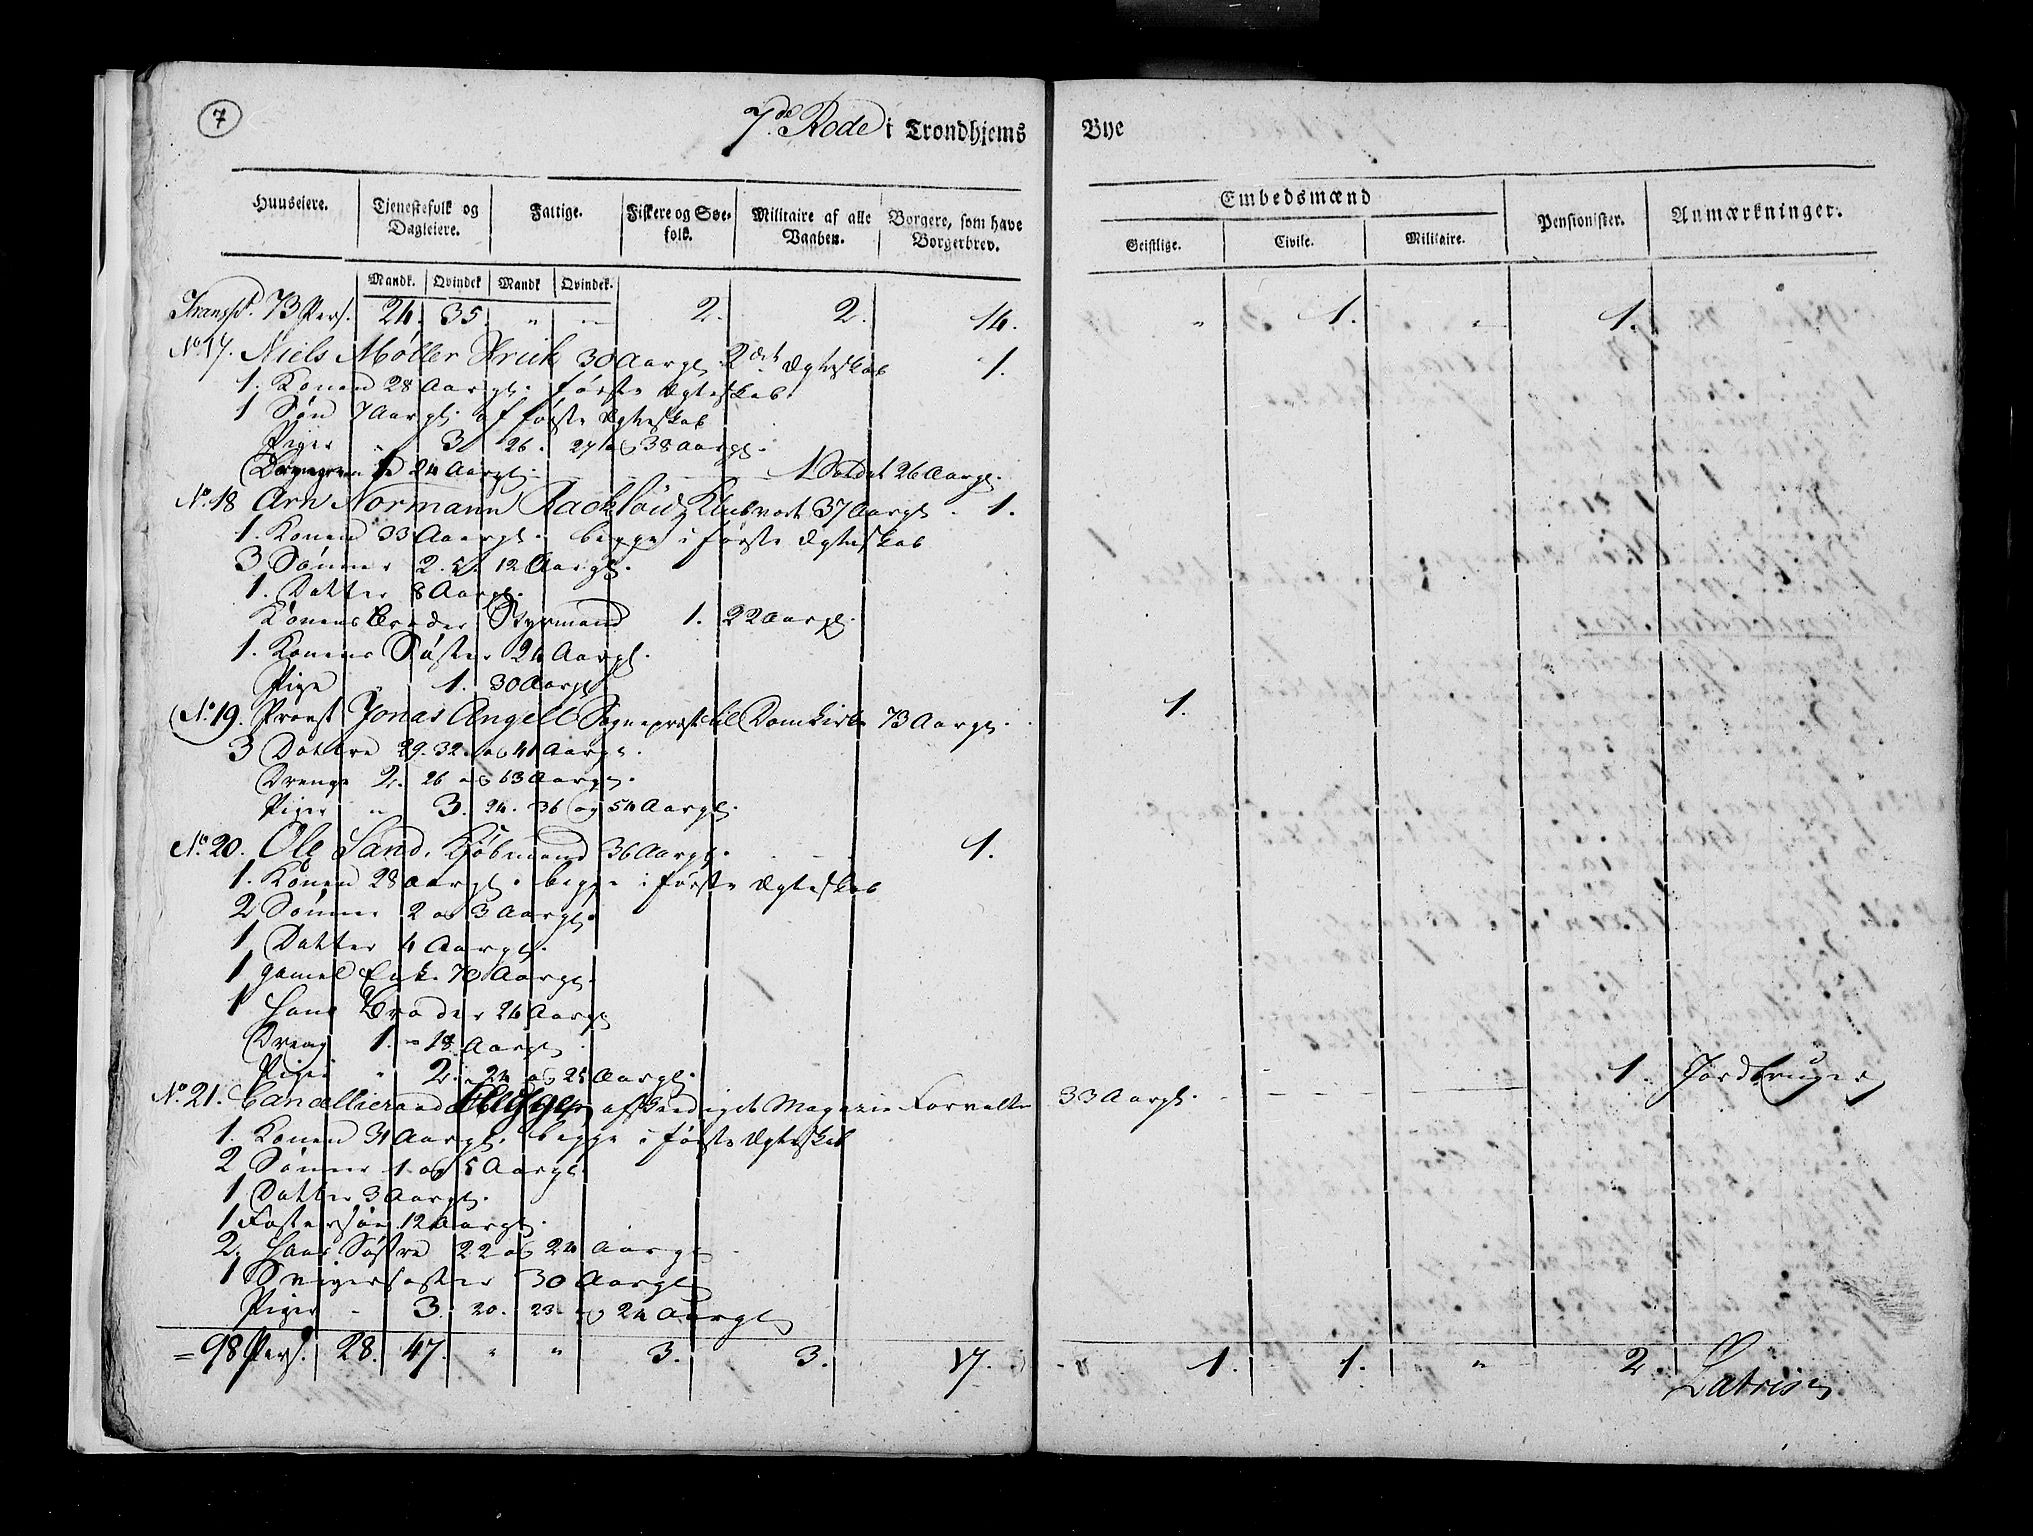 7
7de Rode i Trondhjems Bye
Huuseiere. Tjenestefolk og Dagleiere. Fattige. Fiskere og Søefolk. Militaire af alle Vaaben. Borgere, som have Borgerbrev. Embedsmænd Pensionister. Anmærkninger.
Geistlige. Civile. Militaire.
Mandk. Qvindek Mandk Qvindek.
Transpt. 73 Pers. 24. 35. " " 2. 2. 14. " 1. " 1.
No. 17. Niels Møller 30 Aargl. 2det Ægteskab 1.
1. Konen 28 Aargl. første Ægteskab.
1 Søn 7 Aargl. af første Ægteskab
Piger " 3 26. 27 og 38 Aargl.
1 24 Aargl. 1 Soldat 26 Aargl.
No. 18 Arn Normann Klubvert 37 Aargl. 1.
1. Konen 33 Aargl. begge i første Ægteskab
3 Sønner 2. 5. 12 Aargl.
1. Datter 8 Aargl.
Konens Broder Styrmand 1. 22 Aargl.
1. Konens Søster 24 Aargl.
Pige " 1. 30 Aargl
No. 19. Provst Jonas Angell Sognepræst til Domkirken 73 Aargl. 1.
3 Døttre 29. 32. og 41 Aargl.
Drenge 2. 26 og 63 Aargl.
Piger " 3. 24. 36 og 54 Aargl.
No. 20. Ole Sand. Kjøbmand 36 Aargl. 1.
1. Konen 28 Aargl. begge i første Ægteskab
2 Sønner 2 og 3 Aargl.
1 Datter 4 Aargl.
1 gamel Enke 70 Aargl.
1 Hans Broder 26 Aargl
Dreng 1. " 18 Aargl
Piger " 2. 24 og 25 Aargl. 1. Jordbruger
No. 21. Cancellieraad afskediget Magazin Forvalter 33 Aargl.
1. Konen 31 Aargl. begge i første Ægteskab
2 Sønner 1 og 5 Aargl.
1 Datter 3 Aargl.
1 Fostersøn 12 Aargl.
2 Hans Søstre 22 og 24 Aargl
1 Svigersøster 30 Aargl
Piger - 3. 20. 23 og 24 Aargl
= 98 Pers. 28. 47. " " 3. 3. 17. 1. 1. " 2.